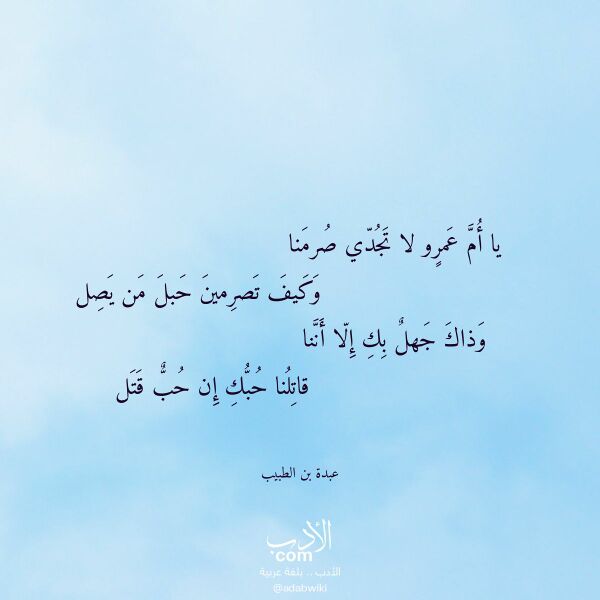 يا أُمَّ عَمرٍو لا تَجُدّي صُرمَنا
وَكَيفَ تَصرِمينَ حَبلَ مَن يَصِل
وَذاكَ جَهلٌ بِكِ إِلّا أَنَّنا
قاتِلُنا حُبُّكِ إِن حُبٌّ قَتَل
عبدة بن الطبيب
الأدب
com
الأدب .. بلغة عربية
@adabwiki